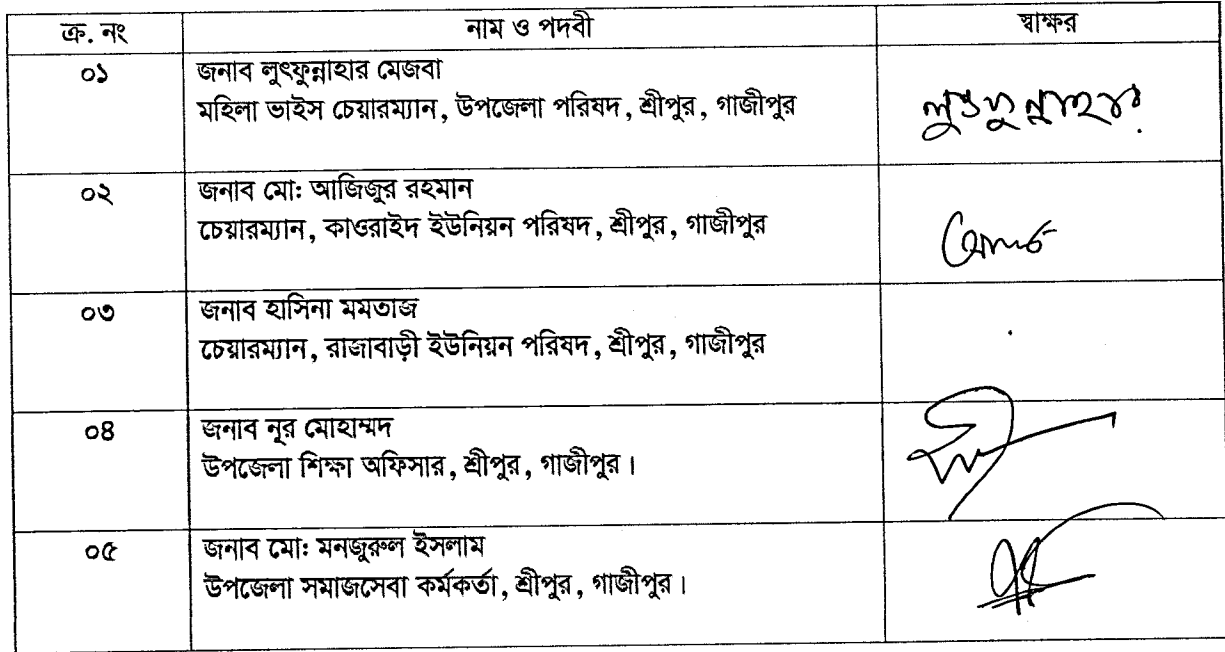 ক্র. নং নাম ও পদবী স্বাক্ষর
০১ জনাব লুৎফুন্নাহার মেজবা
মহিলা ভাইস চেয়ারম্যান, উপজেলা পরিষদ, শ্রীপুর, গাজীপুর
০২ জনাব মো: আজিজুর রহমান
চেয়ারম্যান, কাওরাইদ ইউনিয়ন পরিষদ, শ্রীপুর, গাজীপুর
০৩ জনাব হাসিনা মমতাজ
চেয়ারম্যান, রাজাবাড়ী ইউনিয়ন পরিষদ, শ্রীপুর, গাজীপুর
০৪ জনাব নূর মোহাম্মদ
উপজেলা শিক্ষা অফিসার, শ্রীপুর, গাজীপুর।
০৫ জনাব মো: মনজুরুল ইসলাম
উপজেলা সমাজসেবা কর্মকর্তা, শ্রীপুর, গাজীপুর।